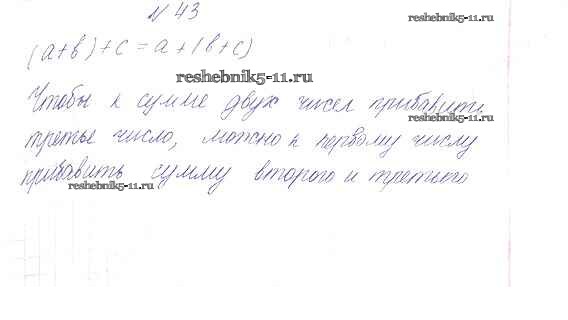 N 43
reshebnik5-11.ru
(a+b)+c=a+(b+c)
reshebnik5-11.ru
Чтобы к сумме двух чисел прибавить
reshebnik5-11.ru
третье число, можно к первому числу
прибавить сумму второго и третьего
reshebnik5-11.ru